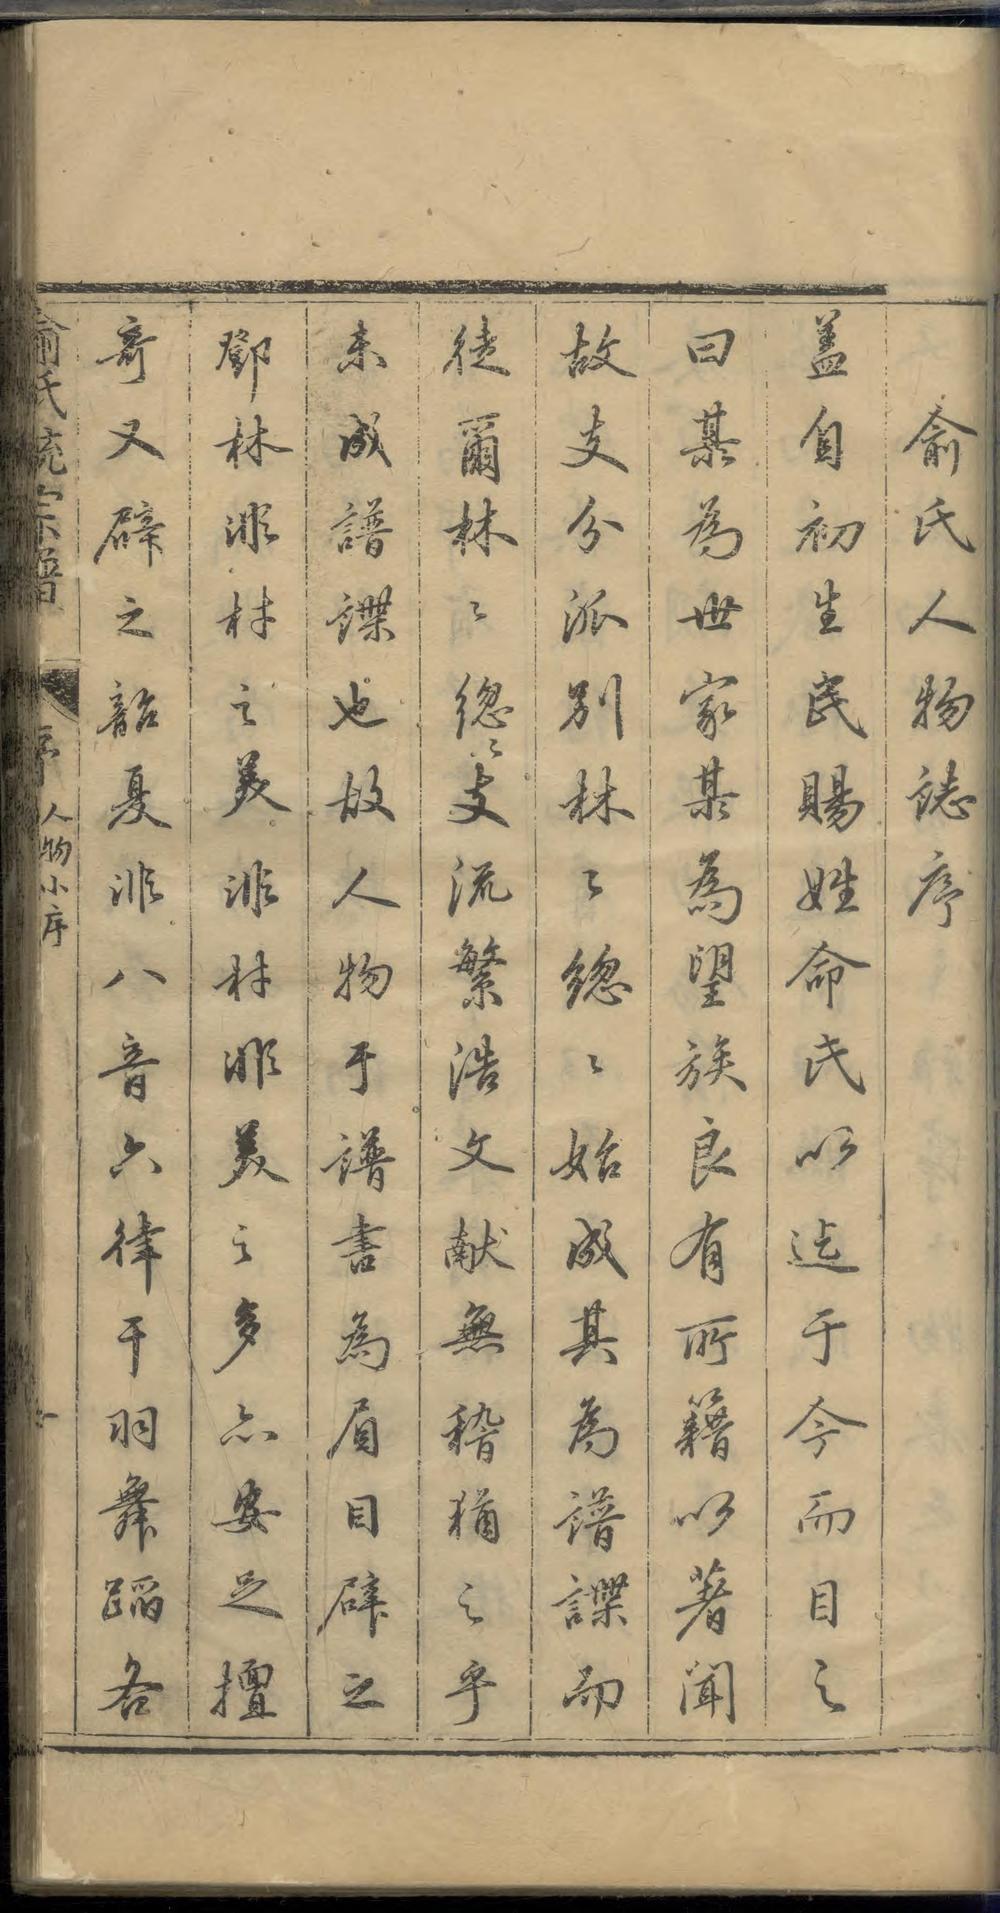 俞氏人物誌序
蓋自初生民賜姓命氏以迄于今而目之
曰某為世家某為望族良有所籍以著聞
故支分派別林〻總〻始成其為譜諜而
徒爾林〻總〻支流繁浩文献無稽猶之乎
未成譜諜也故人物于譜書為眉目辟之
鄧林濰材之美濰材濰美之多亦安足擅
奇又辟之韶夏濰八音六律干羽舞蹈各
俞氏統宗譜
序
人物小序